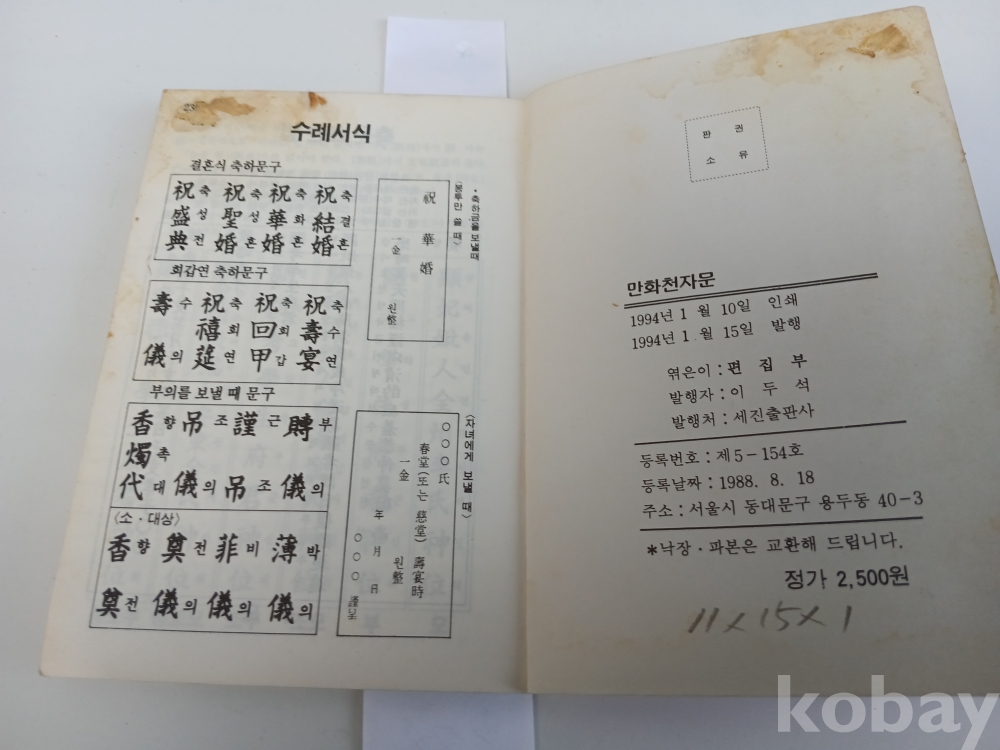 23
수례서식
결혼식 축하문구
祝축 祝축 祝축 祝축
盛성 聖성 華화 結결
典전 婚혼 婚혼 婚혼
회갑연 축하문구
壽수 祝축 祝축 祝축
禧희 回회 壽수
儀의 筵연 甲갑 宴연
부의를 보낼 때 문구
香향 弔조 謹근 賻부
燭촉
代대 儀의 弔조 儀의
〈소·대상〉
香향 奠전 菲비 薄박
奠전 儀의 儀의 儀의
·축하금을 보낼때
(봉투만 쓸 때)
祝華婚
一金 원整
〈자녀에게 보낼 때〉
○○○氏
春堂(또는 慈堂) 壽宴時
一金 원整
年 月 日
○○○ 謹呈
판 권
소 유
만화천자문
1994년 1 월 10일 인쇄
1994년 1 월 15일 발행
엮은이 : 편 집 부
발행자 : 이 두 석
발행처 : 세진출판사
등록번호 : 제 5-154호
등록날짜 : 1988. 8. 18
주소 : 서울시 동대문구 용두동 40-3
*낙장·파본은 교환해 드립니다.
정가 2,500원
11×15×1
kobay